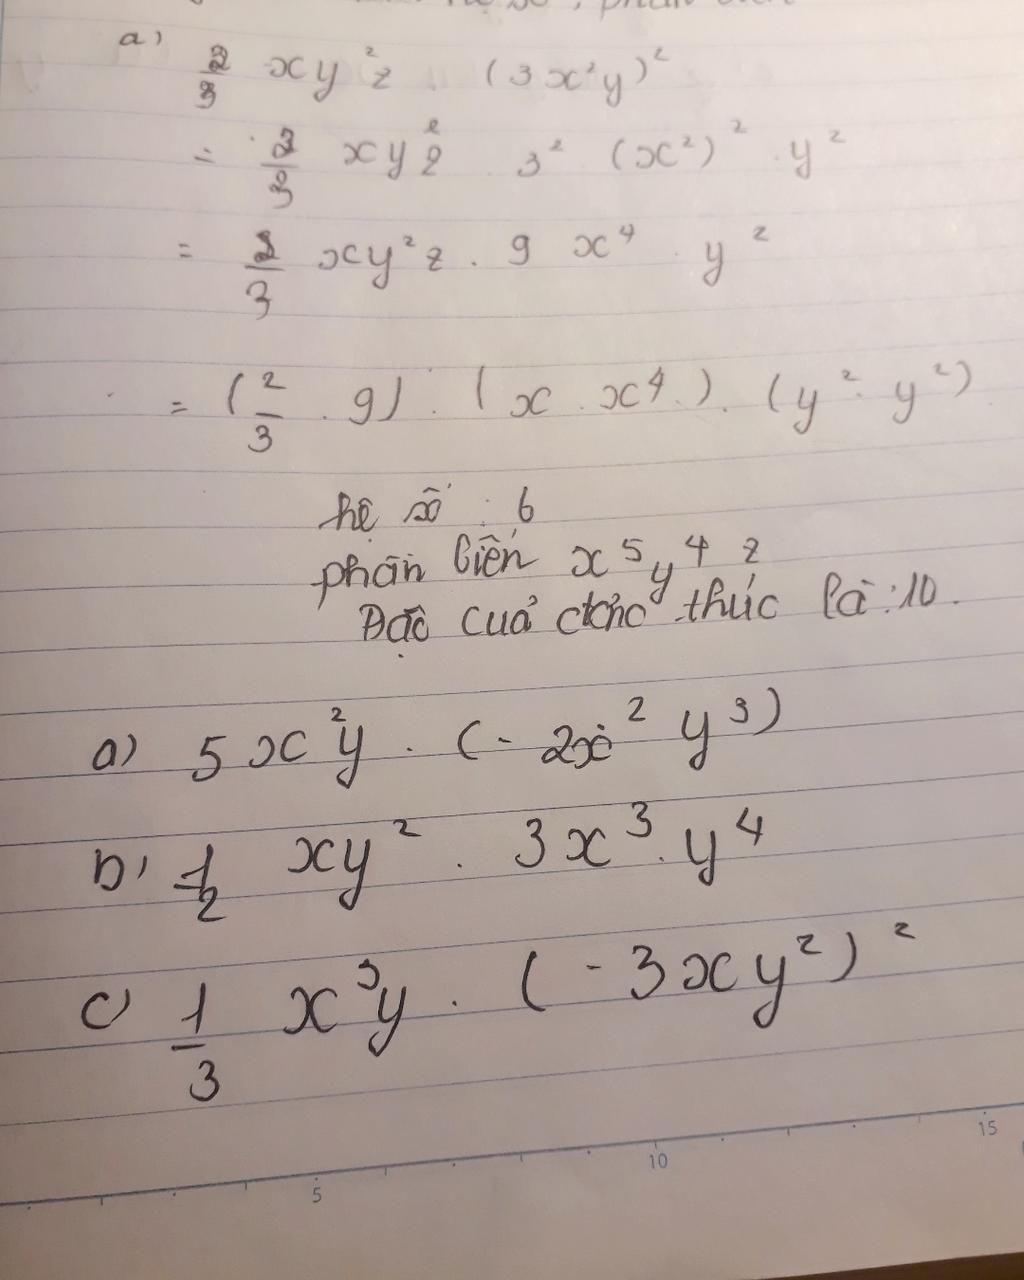 a) 2/3 xy²z (3x²y)²
= 2/3 xy²z 3² (x²)² . y²
= 2/3 xy²z . 9 x⁴ . y²
= (2/3 . 9) . (x . x⁴.) . (y² . y²)
hệ số : 6
phần biến x⁵y⁴z
của thức là : 10.
a) 5x²y . (- 2x² y³)
b) 1/2 xy² . 3x³.y⁴
c) 1/3 x³y . (- 3xy²)²
5 10 15